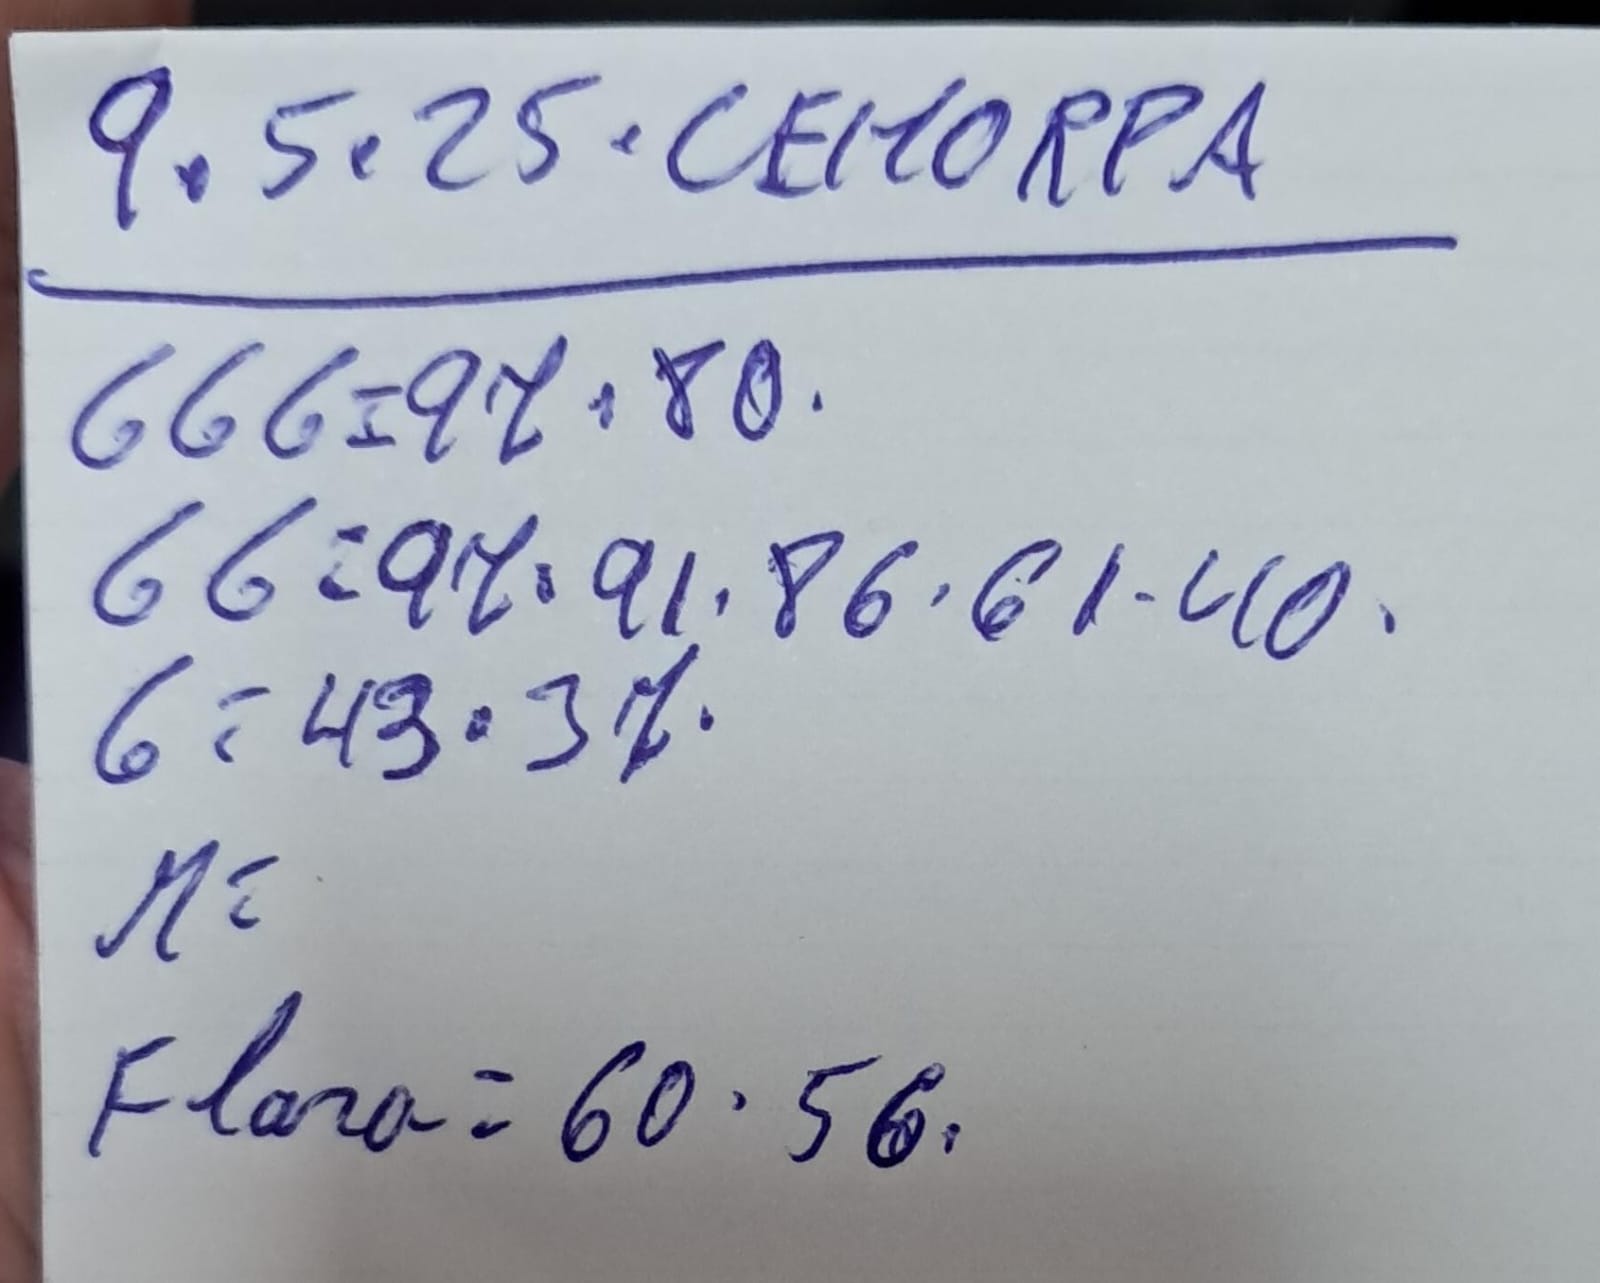 9.5.25.CEMORPA
666=97.80.
66=97.91.86.61.40.
6=43.37.
M=
Flara=60.56.